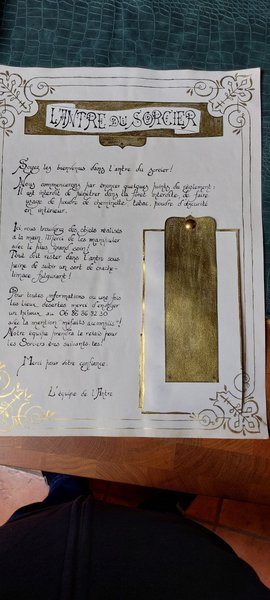 L'ANTRE DU SORCIER
Soyez les bienvenus dans l'antre du sorcier!
Nous commencerons par énoncer quelques points de règlement:
Il est interdit de pénétrer dans la forêt interdite, de faire
usage de poudre de cheminette, tabac, poudre d'obscurité
en intérieur.
Ici, vous trouverez des objets réalisés
à la main. Merci de les manipuler
avec le plus grand soin!
Tout doit rester dans l'antre sous
peine de subir un sort de crache-
limace fulgurant!
Pour toutes informations ou une fois
les lieux désertés merci d'envoyer
un hiboux au 06 86 86 82 30
avec la mention "méfaits accomplis"!
Notre équipe prendra le relais pour
les Sorciers.ères suivants.tes!
Merci pour votre confiance.
L'équipe de l'Antre